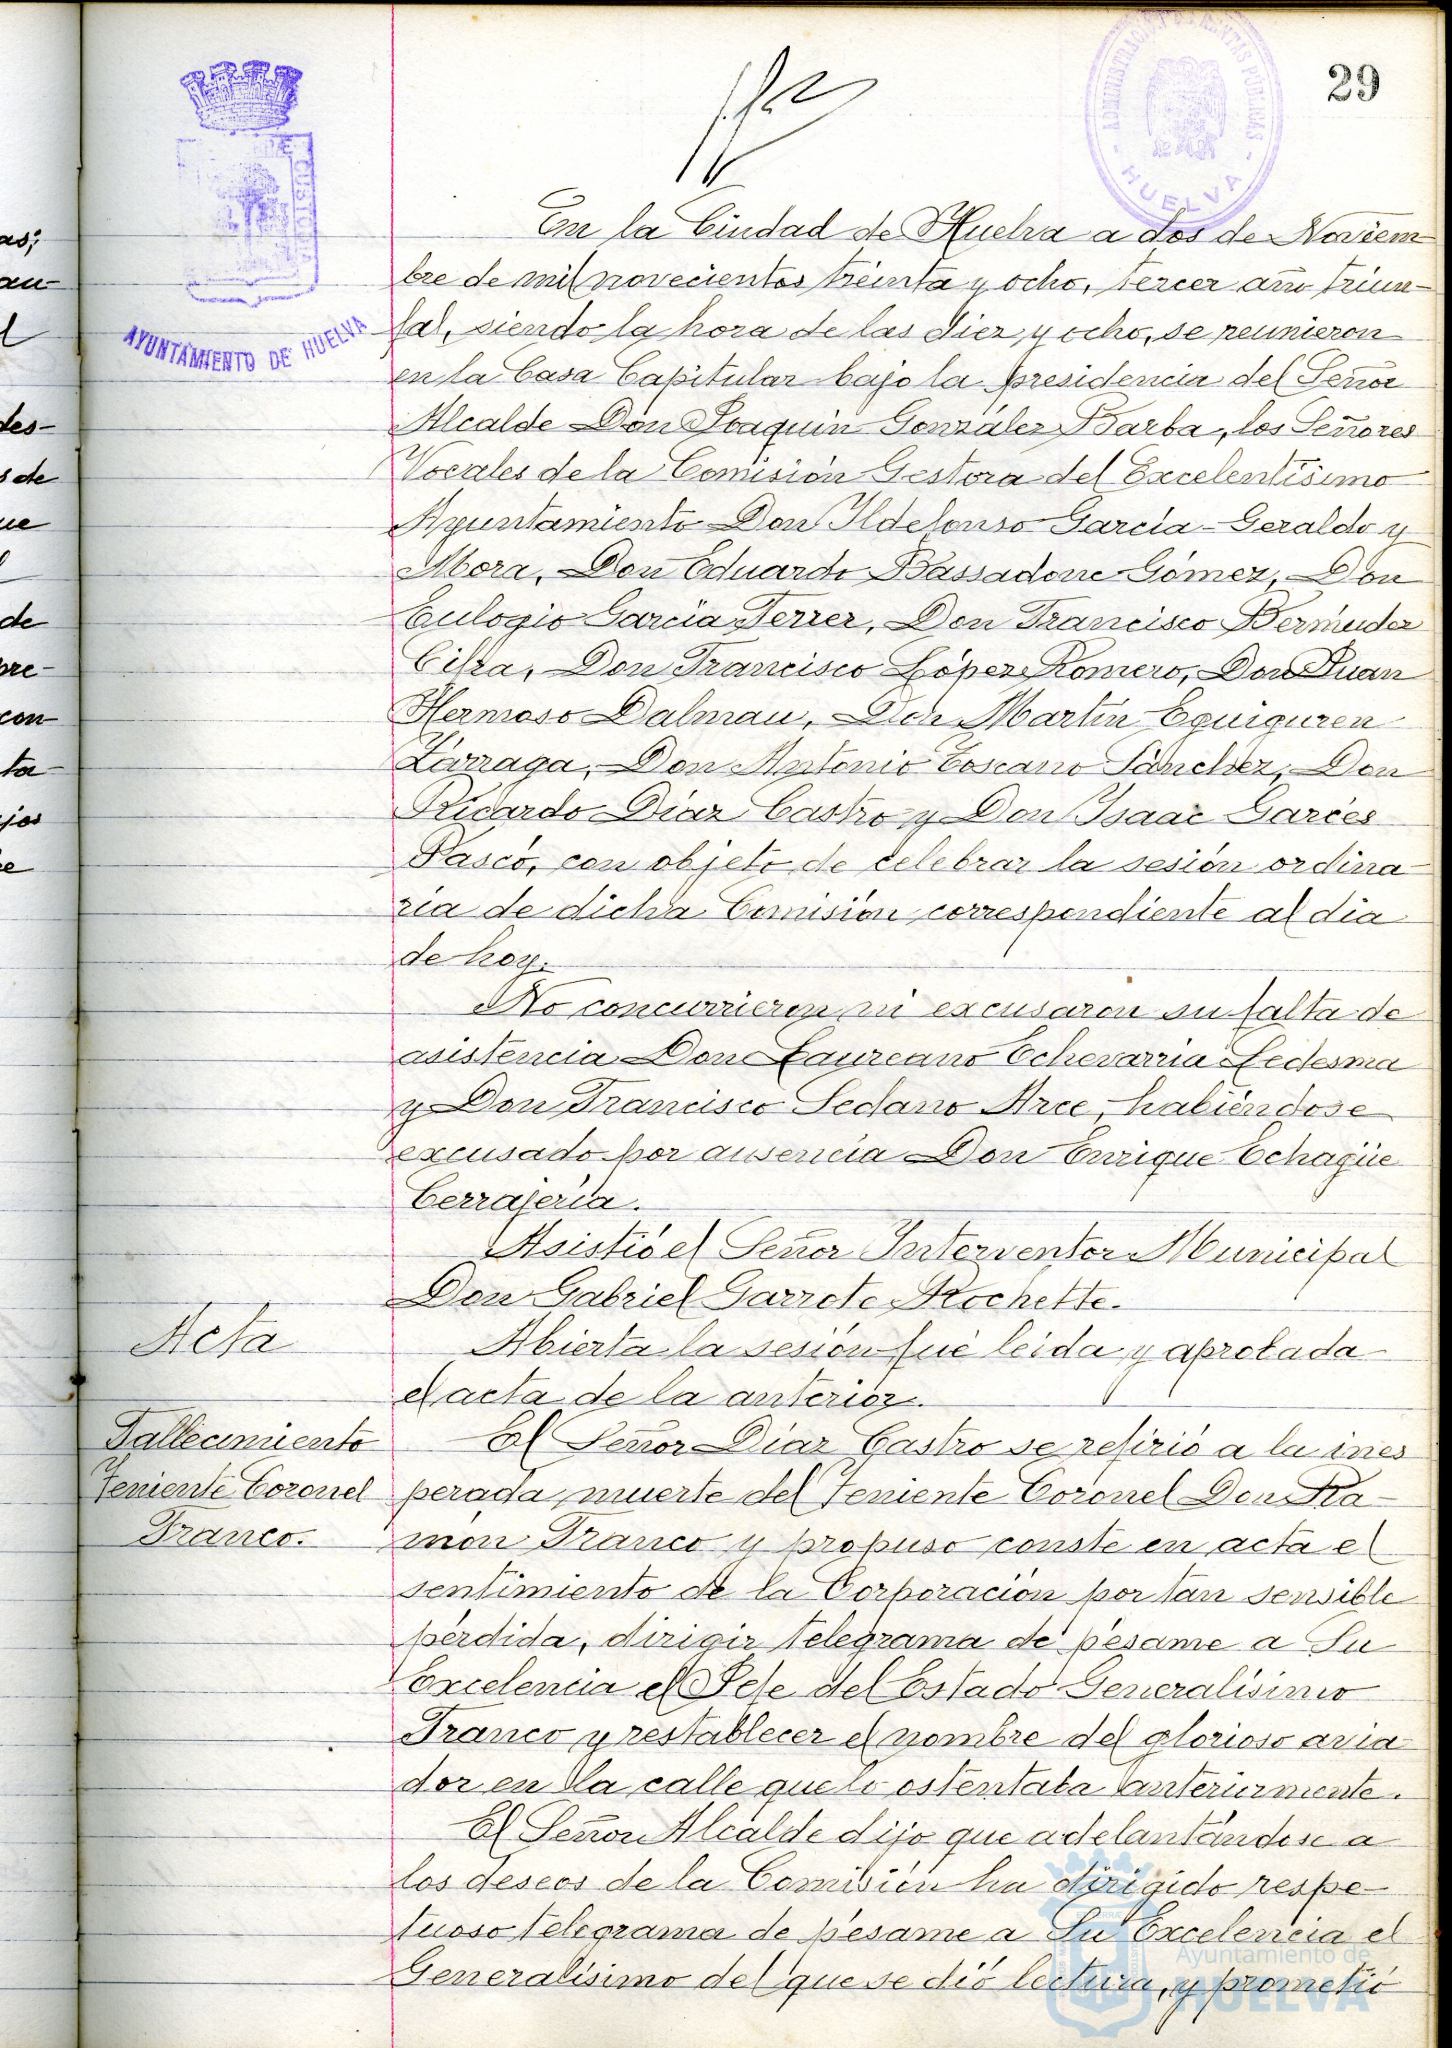 29
ADMINISTRACIÓN DE RENTAS PÚBLICAS
- HUELVA -
CUSTODIA
AYUNTAMIENTO DE HUELVA
as;
au-
l
des-
s de
ue
de
pre-
con
ta-
jos
e
En la Ciudad de Huelva a dos de Noviem-
bre de mil novecientos treinta y ocho, tercer año triun-
fal, siendo la hora de las diez y ocho, se reunieron
en la Casa Capitular bajo la presidencia del Señor
Alcalde Don Joaquin González Barba, los Señores
Vocales de la Comisión Gestora del Excelentísimo
Ayuntamiento Don Ildefonso García-Geraldo y
Mora, Don Eduardo Bassadone Gómez, Don
Eulogio García Ferrer, Don Francisco Bermúdez
Cifra, Don Francisco López Romero, Don Juan
Hermoso Dalmau, Don Martín Eguiguren
Lárraga, Don Antonio Toscano Sánchez, Don
Ricardo Díaz Castro y Don Isaac Garcés
Pascó, con objeto de celebrar la sesión ordina-
ria de dicha Comisión correspondiente al dia
de hoy.
No concurrieron ni excusaron su falta de
asistencia Don Laureano Echevarria Ledesma
y Don Francisco Sedano Arce, habiéndose
excusado por ausencia Don Enrique Echagüe
Cerrajería.
Asistió el Señor Interventor Municipal
Don Gabriel Garrote Rochette.
Acta
Abierta la sesión fué leida y aprobada
el acta de la anterior.
Fallecimiento
Teniente Coronel
Franco.
El Señor Díaz Castro se refirió a la ines
perada muerte del Teniente Coronel Don Ra-
món Franco y propuso conste en acta el
sentimiento de la Corporación por tan sensible
pérdida, dirigir telegrama de pésame a Su
Excelencia el Jefe del Estado Generalísimo
Franco y restablecer el nombre del glorioso avia-
dor en la calle que lo ostentaba anteriormente.
El Señor Alcalde dijo que adelantándose a
los deseos de la Comisión ha dirigido respe-
tuoso telegrama de pésame a Su Excelencia el
Generalísimo del que se dió lectura, y prometió
Ayuntamiento de
HUELVA